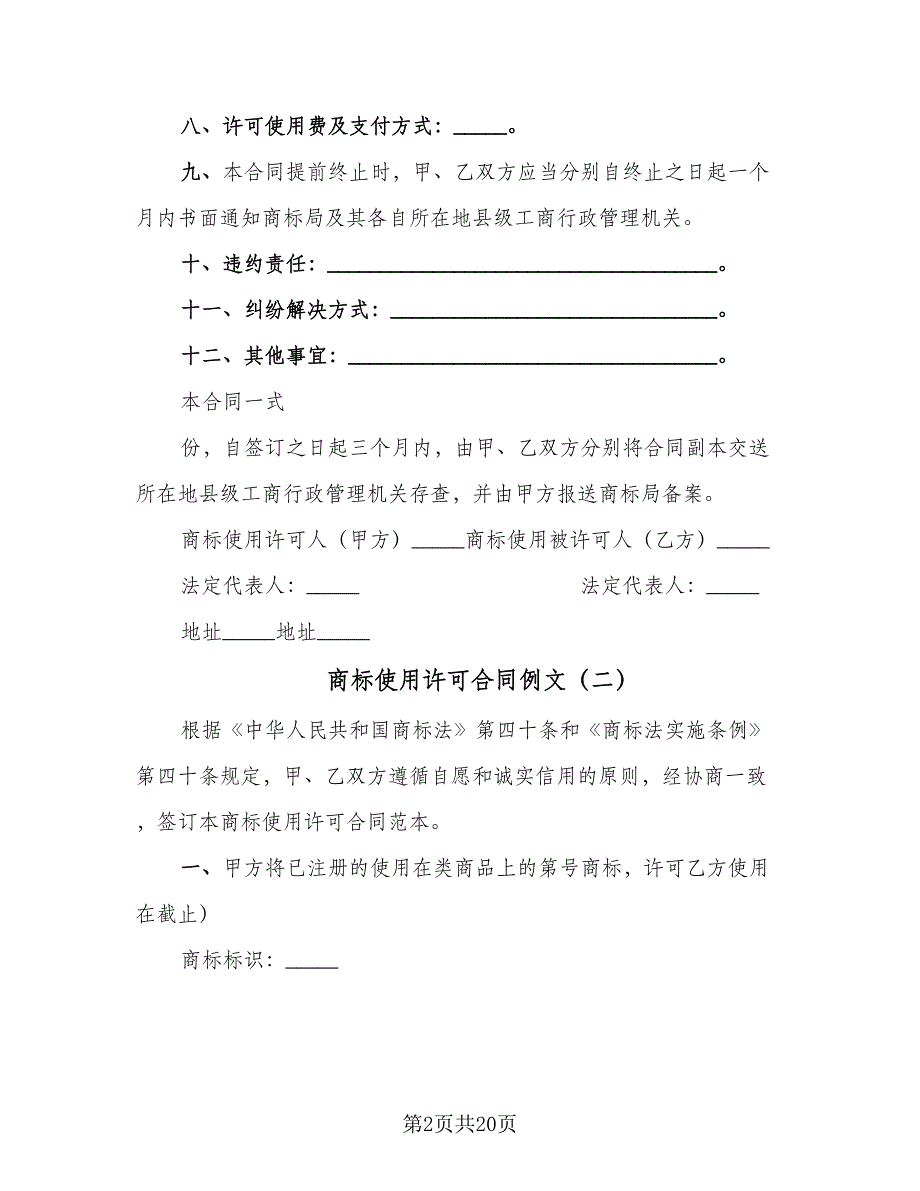 八、许可使用费及支付方式：_____。
九、本合同提前终止时，甲、乙双方应当分别自终止之日起一个
月内书面通知商标局及其各自所在地县级工商行政管理机关。
十、违约责任：_____________________________________。
十一、纠纷解决方式：_______________________________。
十二、其他事宜：___________________________________。
本合同一式
份，自签订之日起三个月内，由甲、乙双方分别将合同副本交送
所在地县级工商行政管理机关存查，并由甲方报送商标局备案。
商标使用许可人（甲方）_____商标使用被许可人（乙方）_____
法定代表人：_____ 法定代表人：_____
地址_____地址_____
商标使用许可合同例文（二）
根据《中华人民共和国商标法》第四十条和《商标法实施条例》
第四十条规定，甲、乙双方遵循自愿和诚实信用的原则，经协商一致
，签订本商标使用许可合同范本。
一、甲方将已注册的使用在类商品上的第号商标，许可乙方使用
在截止）
商标标识：_____
第2页共20页